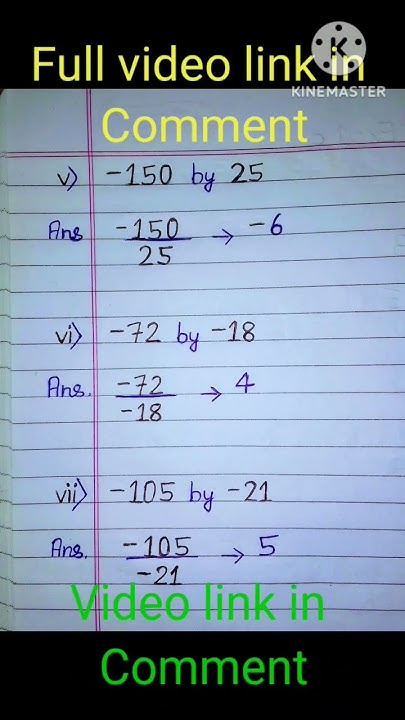 Full video link in
KINEMASTER
Comment
v) -150 by 25
Ans -150/25 → -6
vi) -72 by -18
Ans. -72/-18 → 4
vii) -105 by -21
Ans. -105/-21 → 5
Video link in
Comment